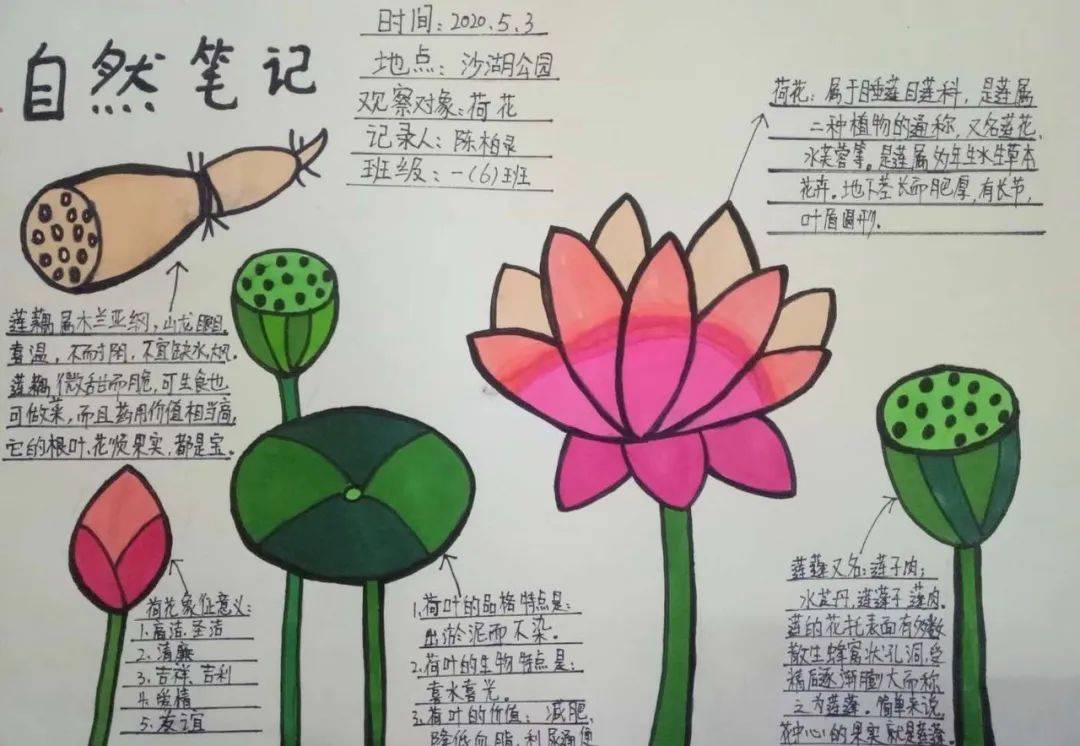 自然笔记
时间：2020.5.3
地点：沙湖公园
观察对象：荷花
记录人：陈柏录
班级：一(6)班
荷花：属于睡莲目莲科，是莲属
二种植物的通称，又名莲花、
水芙蓉等。是莲属多年生水生草本
花卉。地下茎长而肥厚，有长节，
叶盾圆形.
莲藕属木兰亚纲，山龙眼目.
喜温，不耐阴，不宜缺水，大风.
莲藕微甜而脆，可生食也
可做菜，而且药用价值相当高，
它的根叶、花须果实，都是宝。
荷花象征意义：
1.高洁、圣洁
2.清廉
3.吉祥、吉利
4.爱情
5.友谊
1.荷叶的品格特点是：
出淤泥而不染。
2.荷叶的生物特点是：
喜水喜光。
3.荷叶的价值：减肥、
降低血脂、利尿通便
莲蓬又名：莲子肉；
水芝丹，莲蓬子，莲肉。
莲的花托表面有多数
散生蜂窝状孔洞，受
精后逐渐膨大而称
之为莲蓬。简单来说，
花中心的果实就是莲蓬。